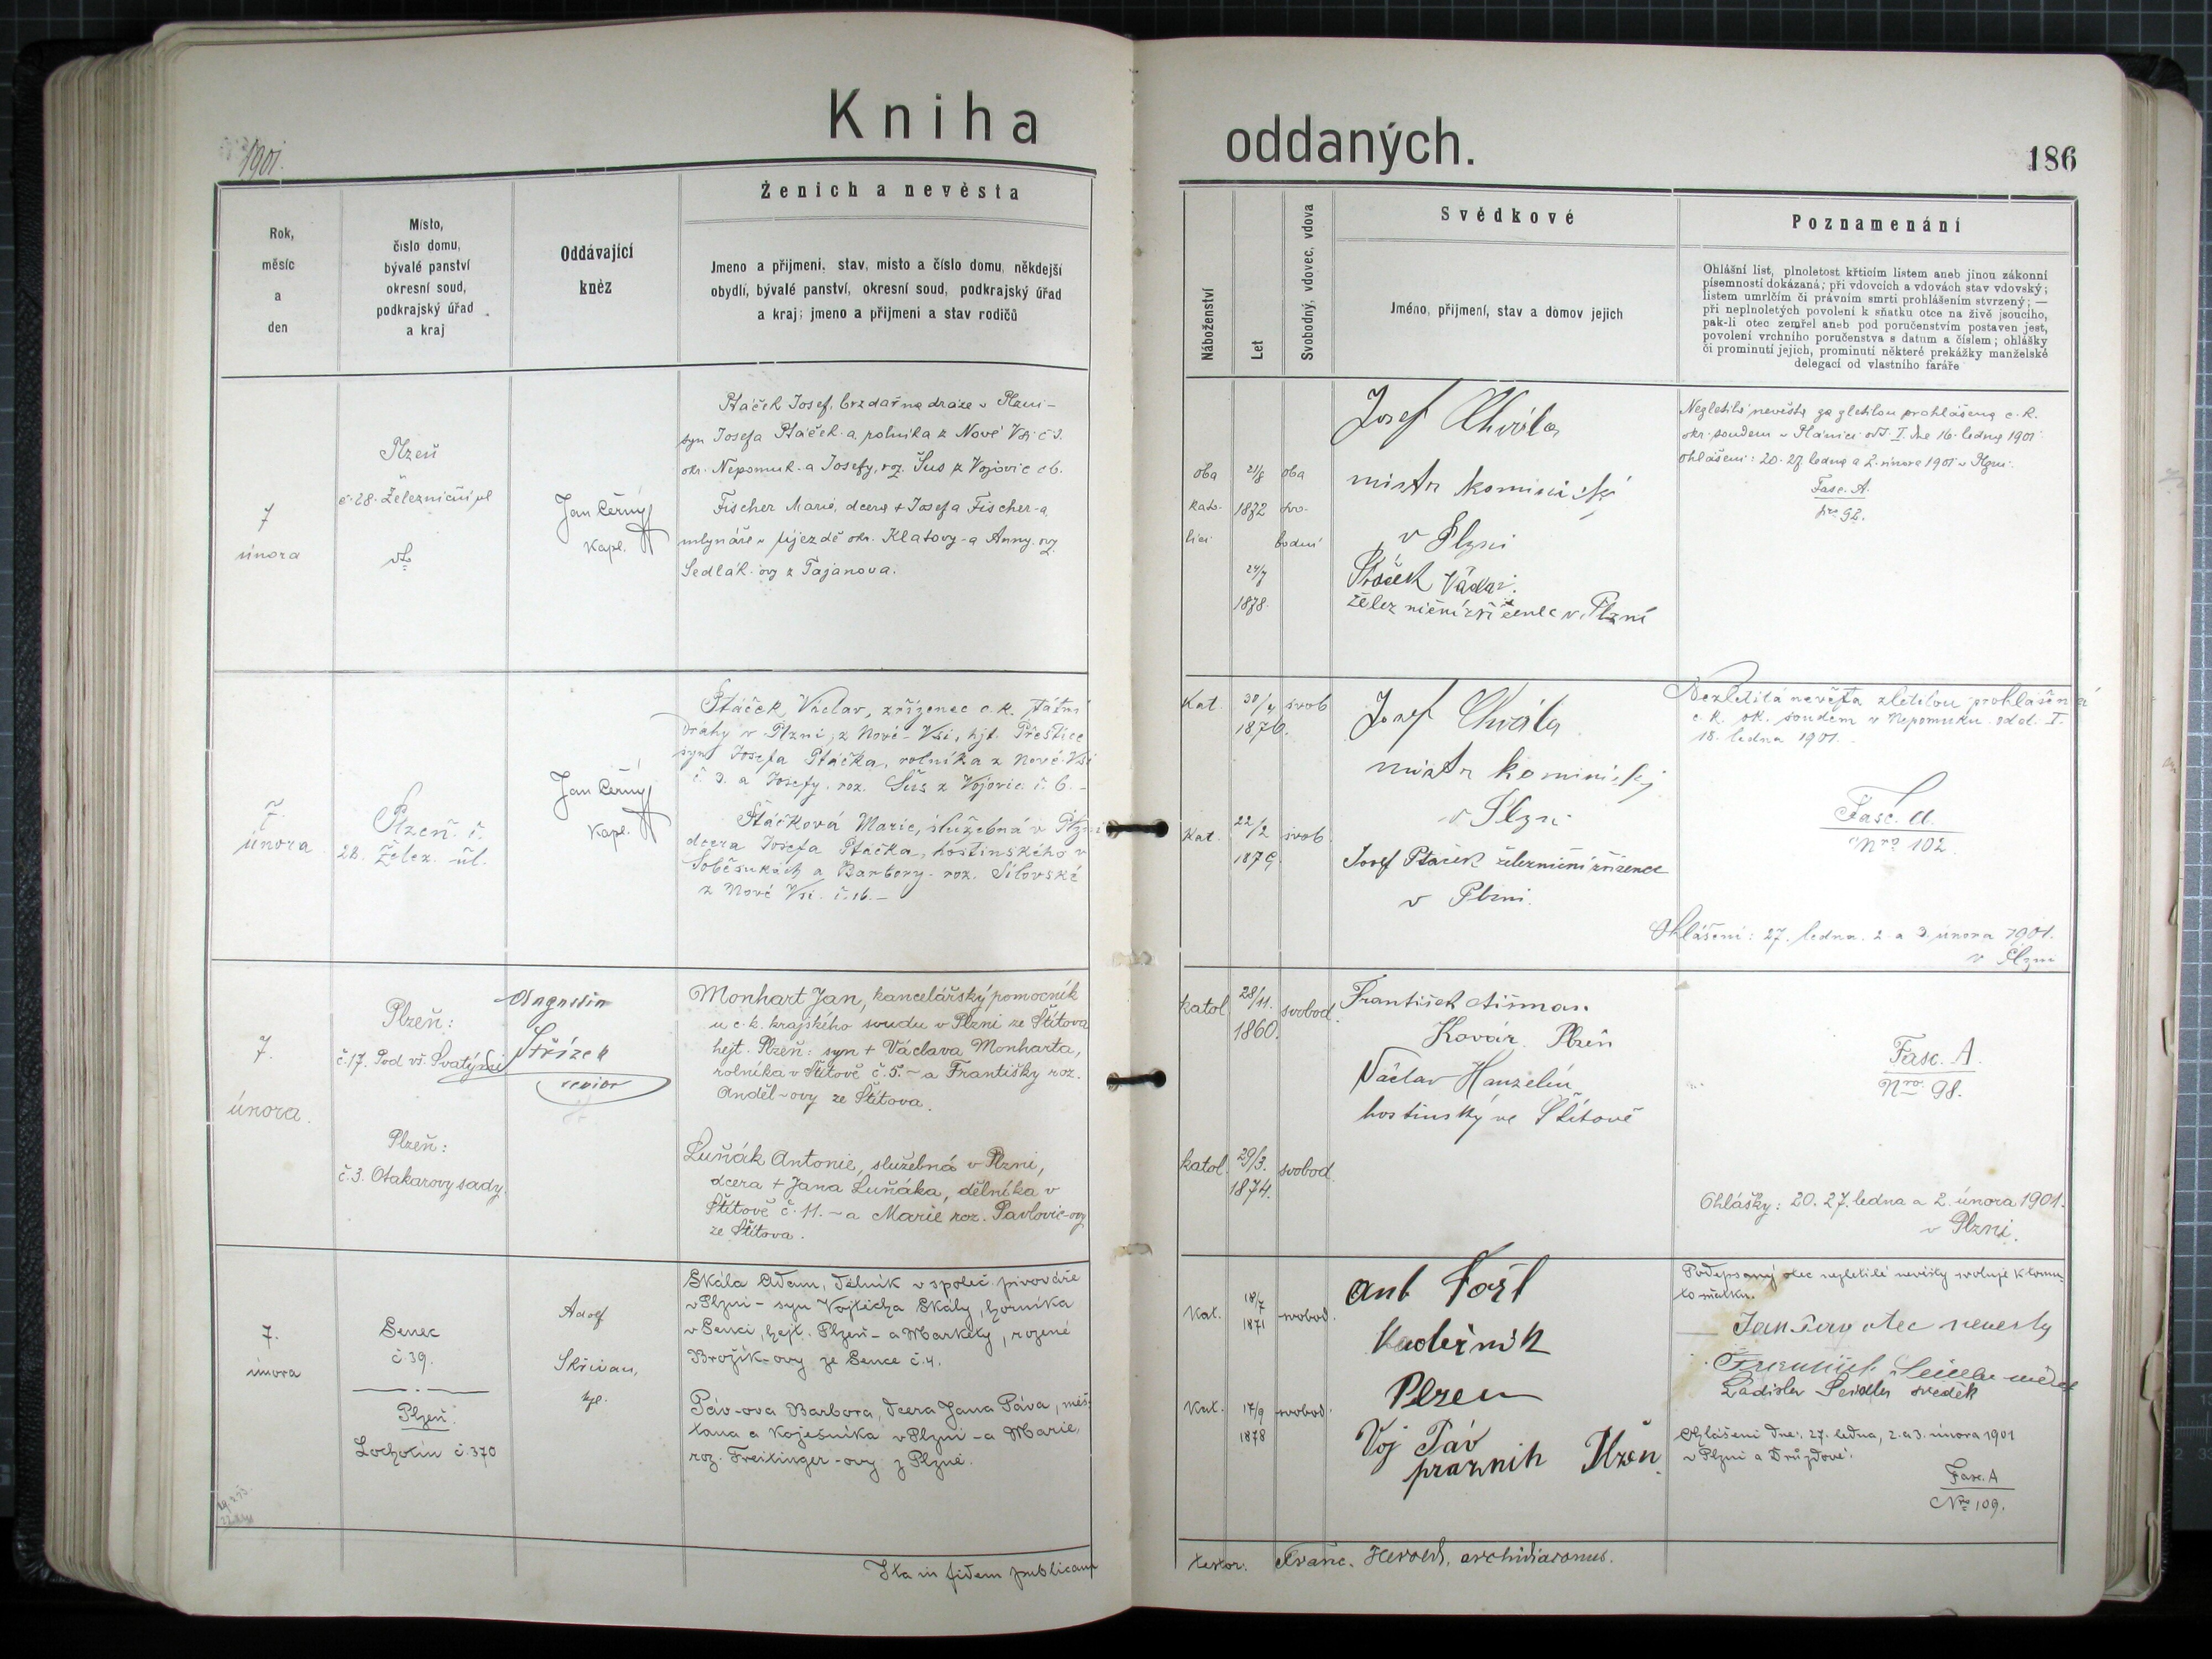 Kniha
oddaných.
1901.
186
Ženich a nevěsta
Rok,
měsíc
a
den
Místo,
číslo domu,
bývalé panství
okresní soud,
podkrajský úřad
a kraj
Oddávající
kněz
Jmeno a přijmeni, stav, misto a číslo domu, někdejší
obydlí, bývalé panství, okresní soud, podkrajský úřad
a kraj; jmeno a přijmeni a stav rodičů
Náboženství
Let
Svobodný, vdovec, vdova
Svědkové
Jméno, přijmení, stav a domov jejich
Poznamenání
Ohlášní list, plnoletost křticím listem aneb jinou zákonní
písemností dokázaná; při vdovcích a vdovách stav vdovský;
listem umrlčím či právním smrti prohlášením stvrzený; —
při neplnoletých povolení k sňatku otce na živě jsoucího,
pak-li otec zemřel aneb pod poručenstvím postaven jest,
povolení vrchního poručenstva s datum a číslem; ohlášky
či prominutí jejich, prominutí některé prekážky manželské
delegací od vlastního faráře
7
února
Plzeň
č. 28. Železniční ul
Jan Černý
Kapl.
Ptáček Josef, brzdař na dráze v Plzni -
syn Josefa Ptáček-a rolníka z Nové Vsi č 3.
okr. Nepomuk - a Josefy, roz. Šus z Vojovic č 6.
Fischer Marie, dcera + Josefa Fischer-a,
mlynáře v Újezdě okr. Klatovy - a Anny, roz.
Sedlák-ovy z Tajanova.
oba
kato-
líci
21/8
1872
24/7
1878.
oba
svo-
bodní
Josef Chvála
mistr kominický
v Plzni
Ptáček Václav
železniční zřízenec v Plzni
Nezletilá nevěsta za zletilou prohlášena c. k.
okr. soudem v Plánici odd. I. dne 16. ledna 1901
Ohlášení: 20. 27 ledna a 2. února 1901 v Plzni.
Fasc. A.
nro 92.
7.
února
Plzeň č.
28. Želez. ul.
Jan Černý
Kapl.
Ptáček Václav, zřízenec c. k. státní
dráhy v Plzni, z Nové-Vsi, hjt. Přeštice
syn Josefa Ptáčka, rolníka z Nové-Vsi
č 3. a Josefy, roz. Šus z Vojovic č. 6. -
Ptáčková Marie, služebná v Plzni
dcera Josefa Ptáčka, hostinského v
Soběsukách a Barbory - roz. Silovské
z Nové Vsi. č. 16. -
Kat.
30/4
1876.
svob
Kat.
22/2
1879.
svob
Josef Chvála
mistr kominický
v Plzni
Josef Ptáček železniční zřízenec
v Plzni.
Nezletilá nevěsta zletilou prohlášena
c. k. ok. soudem v Nepomuku odd. I.
18. ledna 1901.
Fasc. A.
Nro 102.
Ohlášení: 27. ledna. 2. a 3. února 1901.
v Plzni
7.
února.
Plzeň:
č. 17. Pod vš. Svatými
Plzeň:
č. 3. Otakarovy sady.
Augustin
Střízek
senior
Monhart Jan, kancelářský pomocník
u c. k. krajského soudu v Plzni ze Štítova
hejt. Plzeň: syn + Václava Monharta,
rolníka v Štítově č. 5. - a Františky roz.
Anděl-ovy ze Štítova.
Luňák Antonie, služebná v Plzni,
dcera + Jana Luňáka, dělníka v
Štítově č. 11. - a Marie roz. Pavlovic-ovy
ze Štítova.
katol.
28/11.
1860.
svobod.
katol.
29/3.
1874.
svobod.
František
Kovář Plzeň
Václav Hanzelín
hostinský ve Štítově
Fasc. A.
Nro. 98.
Ohlášky: 20. 27. ledna a 2. února 1901.
v Plzni.
7.
února
Senec
č. 39.
Plzeň.
Lochotín č. 370
Adolf
Skřivan,
kpl.
Skála Adam, dělník v společ. pivováře
v Plzni - syn Vojtěcha Skály, horníka
v Senci, hejt. Plzeň - a Markéty, rozené
Brožík-ovy ze Sence č. 4.
Páv-ova Barbora, dcera Jana Páva, měš-
ťana a koješníka v Plzni - a Marie,
roz. Freitinger-ovy z Plzně.
Kat.
18/7
1871
svobod.
Kat.
17/9
1878
svobod.
Ant Fořt
Kadeřník
Plzen
Voj Páv
Plzěn
Podepsaný otec nezletilé nevěsty svoluje k tomu-
to sňatku.
Jan Pav otec nevesty
Ladislav Seidler svedek
Ohlášení dne: 27. ledna, 2. a 3. února 1901
v Plzni a Druzdové.
Fasc. A
Nro 109.
Ita in fidem publicam
testor. Franc. Herold, archidiaconus.